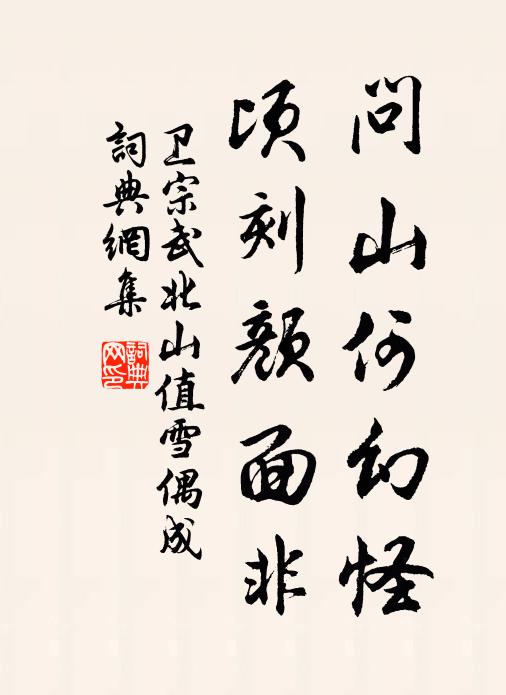 問山何幻怪
頃刻顔面非
卫宗武北山值雪偶成
詞典網集
詞典
网印